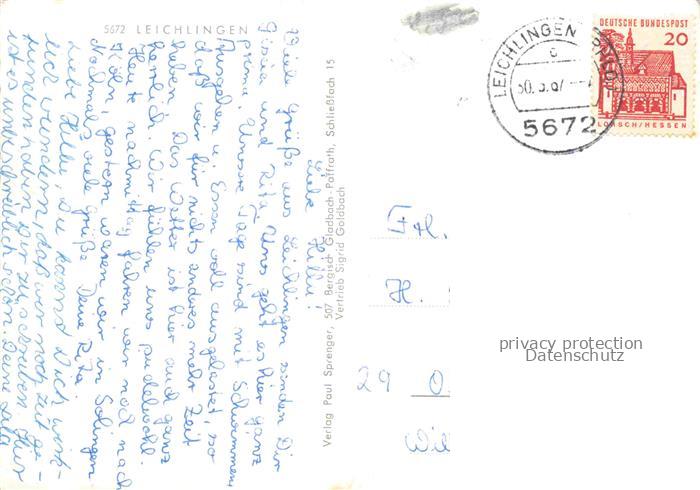 5672 LEICHLINGEN
Liebe Hilla!
Viele Grüße aus Leichlingen senden Dir
und Rita. Uns geht es hier ganz
prima. Unsere Tage sind mit Schwimmen,
Ausgehen u. Essen voll ausgelastet, so
daß wir für nichts anderes mehr Zeit
haben. Das Wetter ist hier auch ganz
herrlich. Wir fühlen uns pudelwohl.
Heute nachmittag fahren wir noch nach
Köln, gestern waren wir in Solingen.
Nochmals viele Grüße Deine Rita
Liebe Hilla, Du kannst Dich wirk-
lich wundern, daß wir noch Zeit ge-
funden haben Dir zu schreiben. Hier
ist es unbeschreiblich schön. Deine
Verlag Paul Sprenger, 507 Bergisch Gladbach-Paffrath, Schließfach 15
Vertrieb Sigrid Goldbach
LEICHLINGEN
5672
DEUTSCHE BUNDESPOST
20
LORSCH/HESSEN
Frl.
H.
29 O
Wil
privacy protection
Datenschutz